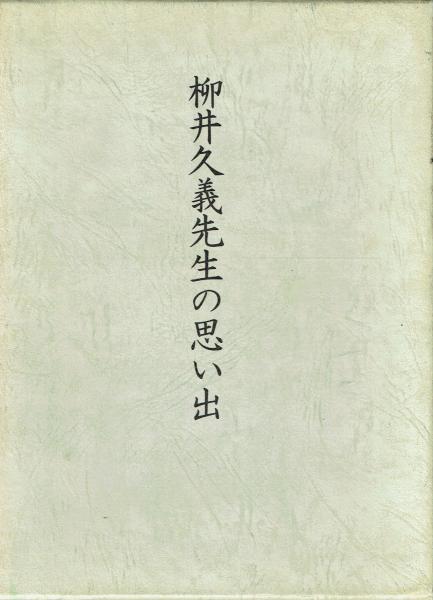 柳井久義先生の思い出